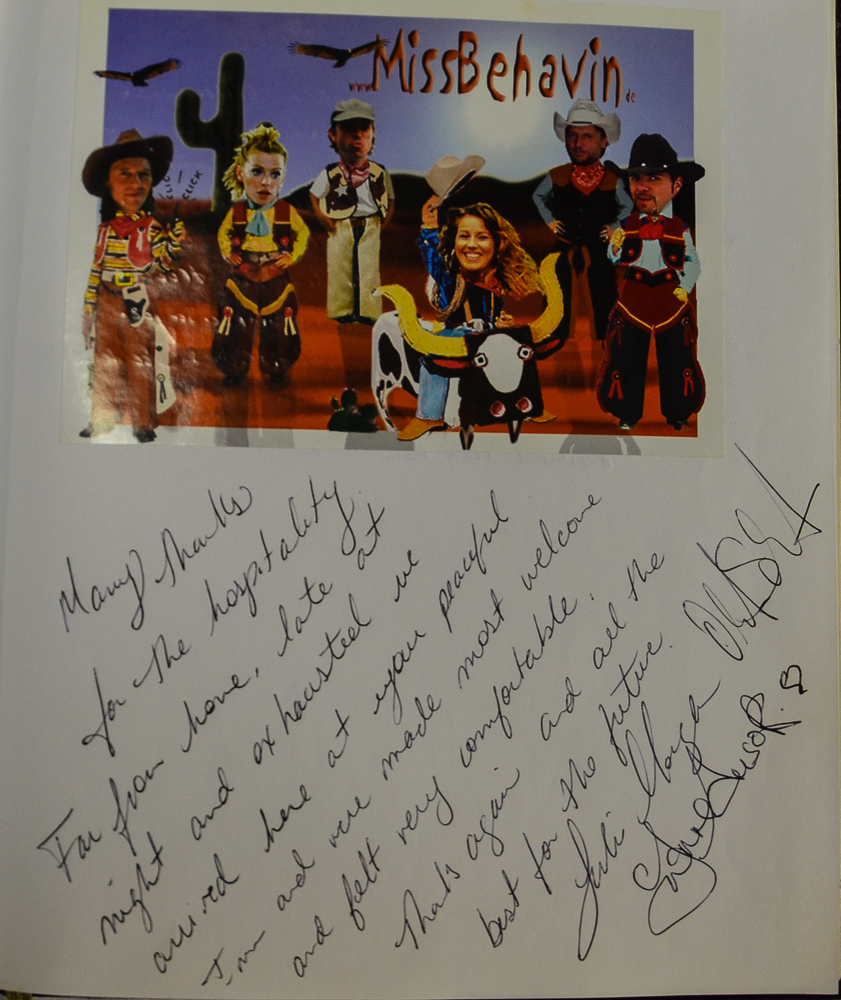 www.MissBehavin.de
CLIC
CLICK
Many thanks
for the hospitality.
Far from home, late at
night and exhausted we
arrived here at your peaceful
Inn and were made most welcome
and felt very comfortable.
Thanks again and all the
best for the future.